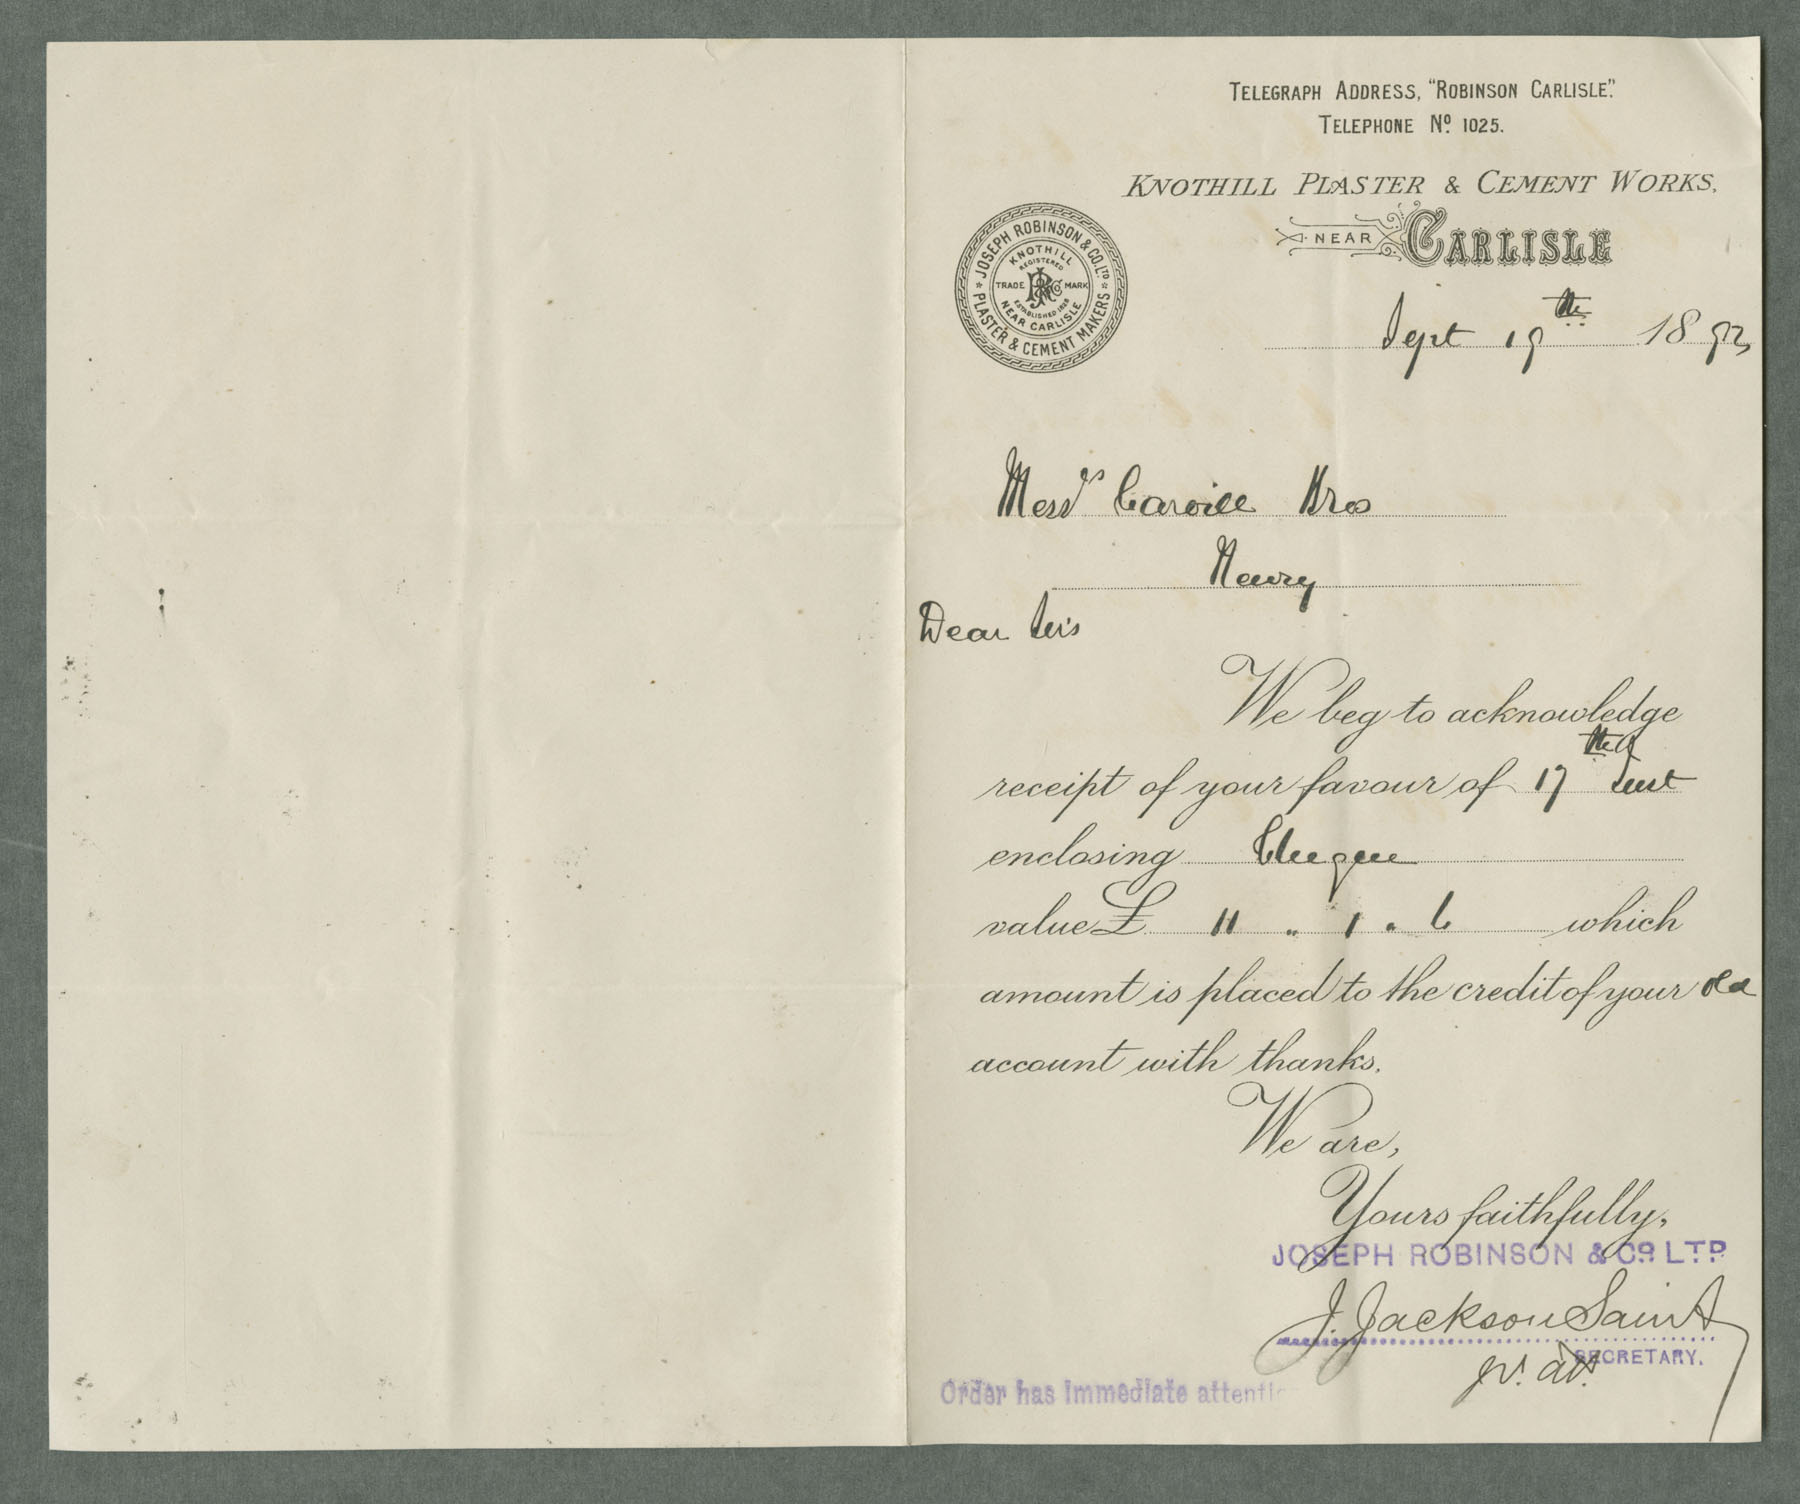 TELEGRAPH ADDRESS, "ROBINSON CARLISLE".
TELEPHONE Nº 1025.
KNOTHILL PLASTER & CEMENT WORKS,
NEAR CARLISLE
JOSEPH ROBINSON & CO. LTD
PLASTER & CEMENT MAKERS
KNOTHILL
REGISTERED
TRADE MARK
ESTABLISHED
NEAR CARLISLE
Sept 19th 1893
Messrs Carvill Bros
Newry
Dear Sirs
We beg to acknowledge
receipt of your favour of 17th Inst
enclosing Cheque
value £ 11 " 1 " 6 which
amount is placed to the credit of your old
account with thanks.
We are,
Yours faithfully,
JOSEPH ROBINSON & CO. LTD
J. Jackson Saint
SECRETARY.
Order has immediate attenti